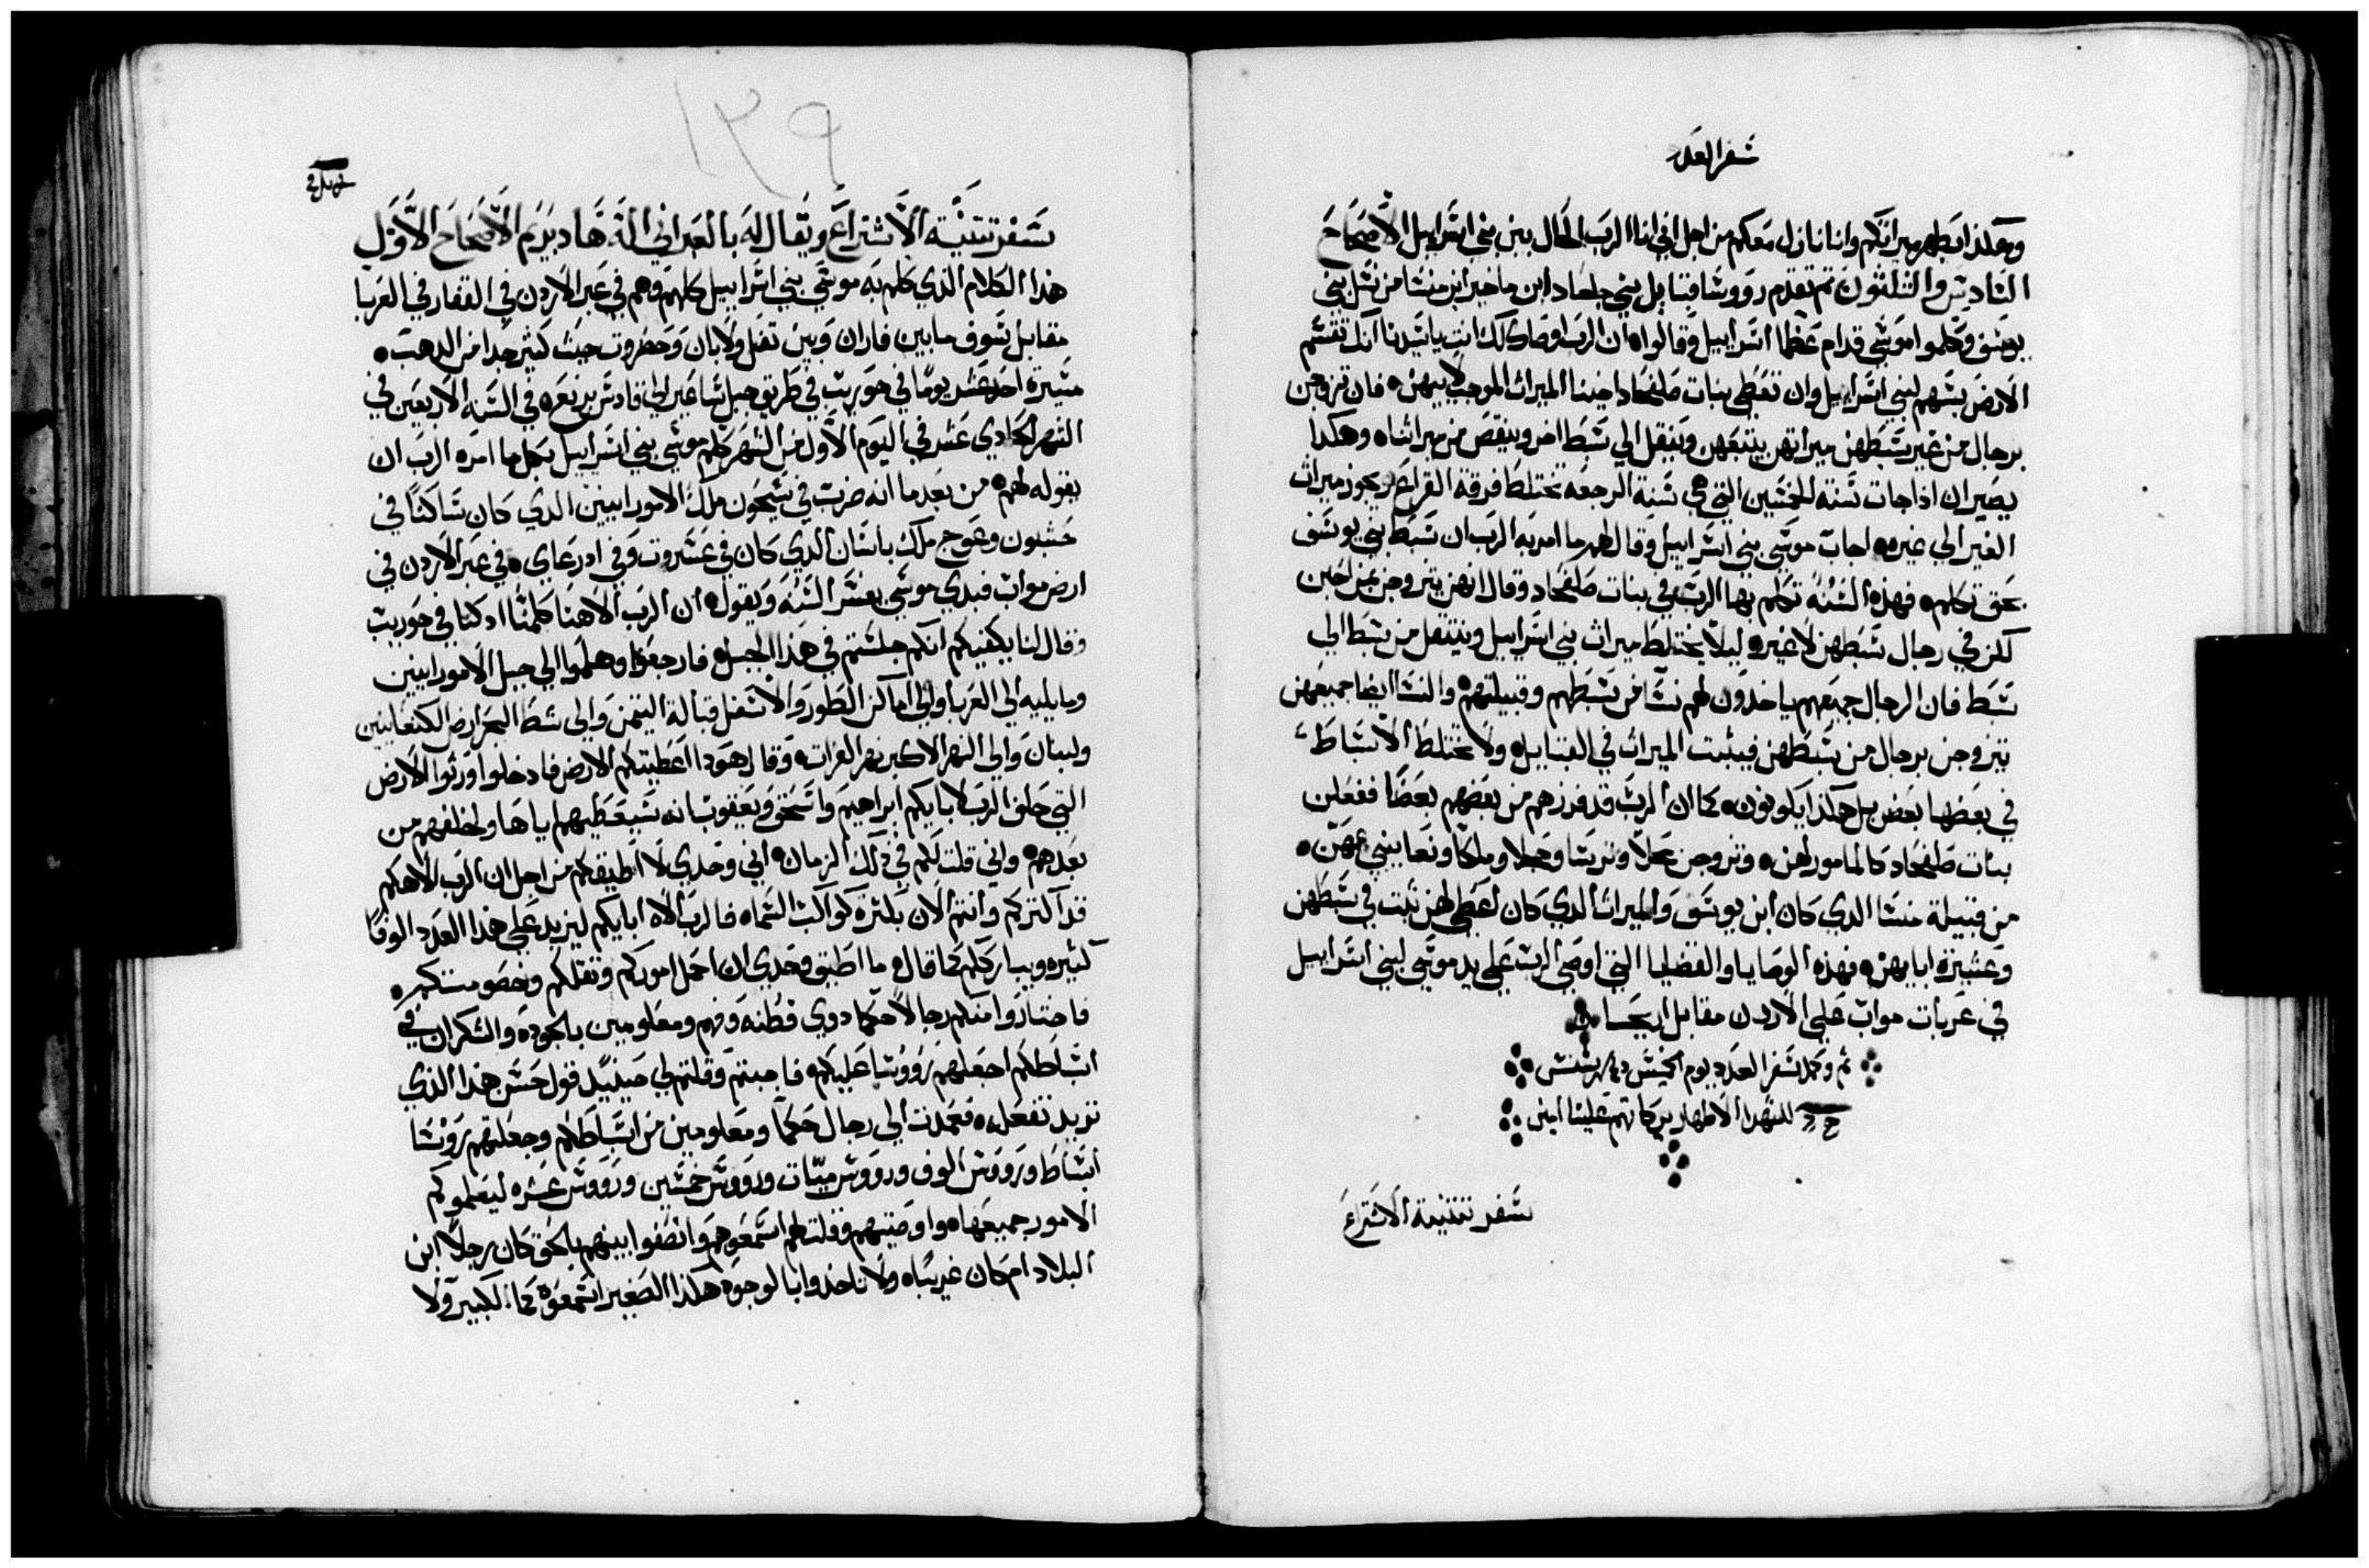 سفر العدد
وهكذا يطهر ميراثكم وانا نازل معكم من اجل اني انا الرب الحال بين بني اسراييل الاصحاح
السادس والثلثون ثم تقدم رووسا قبايل بني جلعاد ابن ماخير ابن منسا من نسل بني
يوسف وكلموا موسي قدام عظما اسراييل وقالوا ان الرب اوصاك لك انت ياسيدنا انك تقسم
الارض بسهم لبني اسراييل وان تعطي بنات صلفحاد اخينا الميراث الموجب لابيهن فان تزوجن
برجال من غير سبطهن ميراثهن يتبعهن وينقل الي سبط اخر وينقص من ميراثنا وهكدا
يصير ان اذا جات سنة الخمسين التي هي سنة الرجعه تختلط فرقة القراع ويجوز ميراث
الغير الي غيره اجاب موسي بني اسراييل وقال لهم ما امر به الرب ان سبط بني يوسف
بحق تكلم فهذه السنه تكلم بها الرب في بنات صلفحاد وقال انهن يتزوجن بمن احبن
لكن في رجال سبطهن لا غيره ليلا يختلط ميراث بني اسراييل وينتقل من سبط الي
سبط فان الرجال جميعهم ياخدون لهم نسا من سبطهم وقبيلتهم والنسا ايضا جميعهن
يتزوجن برجال من سبطهن فيثبت الميراث في القبايل ولا تختلط الاسباط
في بعضها بعض بل هكذا يكونون كما ان الرب قد فرزهم من بعضهم بعضا ففعلن
بنات صلفحاد كالمامور لهن وتزوجن محلا وترسا وحجلا وملكا ونعا ببني عمهن
من قبيلة منسا الدي كان ابن يوسف والميراث الدي كان اعطي لهن ثبت في سبطهن
وعشيرة ابايهن فهذه الوصايا والقضايا التي اوصي الرب علي يد موسي لبني اسراييل
في عربات مواب علي الاردن مقابل اريحا
تم وكمل سفر العدد يوم الخميس
للشهدا الاطهار بركاتهم علينا امين
سفر تثنية الاشتراع
١٣٩
سفر تثنية الاشتراع ويقال له بالعبراني اله هادبريم الاصحاح الاول
هذا الكلام الذي كلم به موسي بني اسراييل كلهم وهم في عبر الاردن في القفار في العربا
مقابل سوف مابين فاران وبين تفل ولابان وحضروت حيث كثير جدا من الدهب
مسيرة احد عشر يومًا في حوريب في طريق جبل ساعير الي قادس برنيع وفي السنه الاربعين في
الشهر الحادي عشر في اليوم الاول من الشهر كلم موسي بني اسراييل بكل ما امره الرب ان
يقوله لهم من بعد ما انه ضرب في سيحون ملك الامورانيين الدي كان ساكنًا في
حشبون وعوج ملك باسان الدي كان في عشروت وفي ادرعاي في عبر الاردن في
ارض مواب فبدي موسي يفسر السنه ويقول ان الرب الاهنا كلمنا اد كنا في حوريب
وقال لنا يكفيكم انكم جلستم في هذا الجبل فارجعوا وهلموا الي جبل الامورانيين
ومايليه الي العربا والي اماكن الطور والاسفل قبالة التيمن والي شط البحر ارض الكنعانيين
ولبنان والي النهر الاكبر نهر الفرات وقال هودا اعطيتكم الارض فادخلوا ورثوا الارض
التي حلف الرب لابايكم ابراهيم واسحق ويعقوب انه سيعطيهم اياها ولخلفهم من
بعدهم واني قلت لكم في ذلك الزمان اني وحدي لا اطيقكم من اجل ان الرب الاهكم
قد اكثركم وانتم الان بكثرة كواكب السما فالرب الاه ابايكم ليزيد علي هذا العدد الوفًا
كثيره ويبارككم كما قال ما اطيق وحدي ان احمل اموركم وثقلكم وخصومتكم
فاختاروا منكم رجالا حكما دوي فطنه وفهم ومعلومين بالجوده والشكران في
اسباطكم اجعلهم رووسا عليكم فاجبتم وقلتم لي حينييد قول حسن هذا الذي
تريد تفعل فعمدت الي رجال حكما ومعلومين من اسباطكم وجعلتهم رووسا
اسباط ورووس الوف ورووس ميات ورووس خمسين ورووس عشره ليعلموكم
الامور جميعها واوصيتهم وقلت لهم اسمعوهم وانصفوا بينهم بالحق كان رجلا ابن
البلاد ام كان غريبا ولا تاخدوا بالوجوه هكذا الصغير اسمعوه كما الكبير ولا